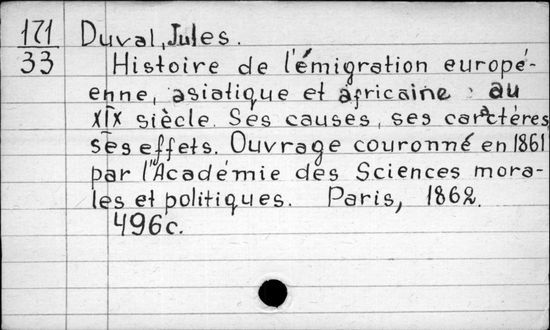 171
33
Duval, Jules.
Histoire de l'émigration europé-
enne, asiatique et africaine au
XIX siècle. Ses causes, ses caractères
ses effets. Ouvrage couronné en 1861
par l'Académie des Sciences mora-
les et politiques. Paris, 1862.
496c.